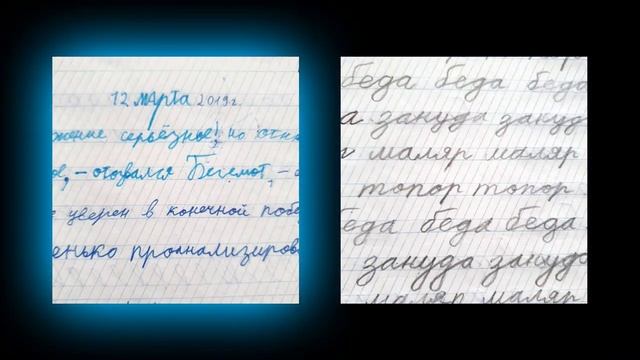 12 марта 2019 г.
жение серьёзное, но отн
ое, – отозвался Бегемот, –
уверен в конечной побе
енько проанализирова
беда беда беда
а зануда зануд
маляр маляр
топор топор
беда беда беда
зануда зануда
маляр маляр